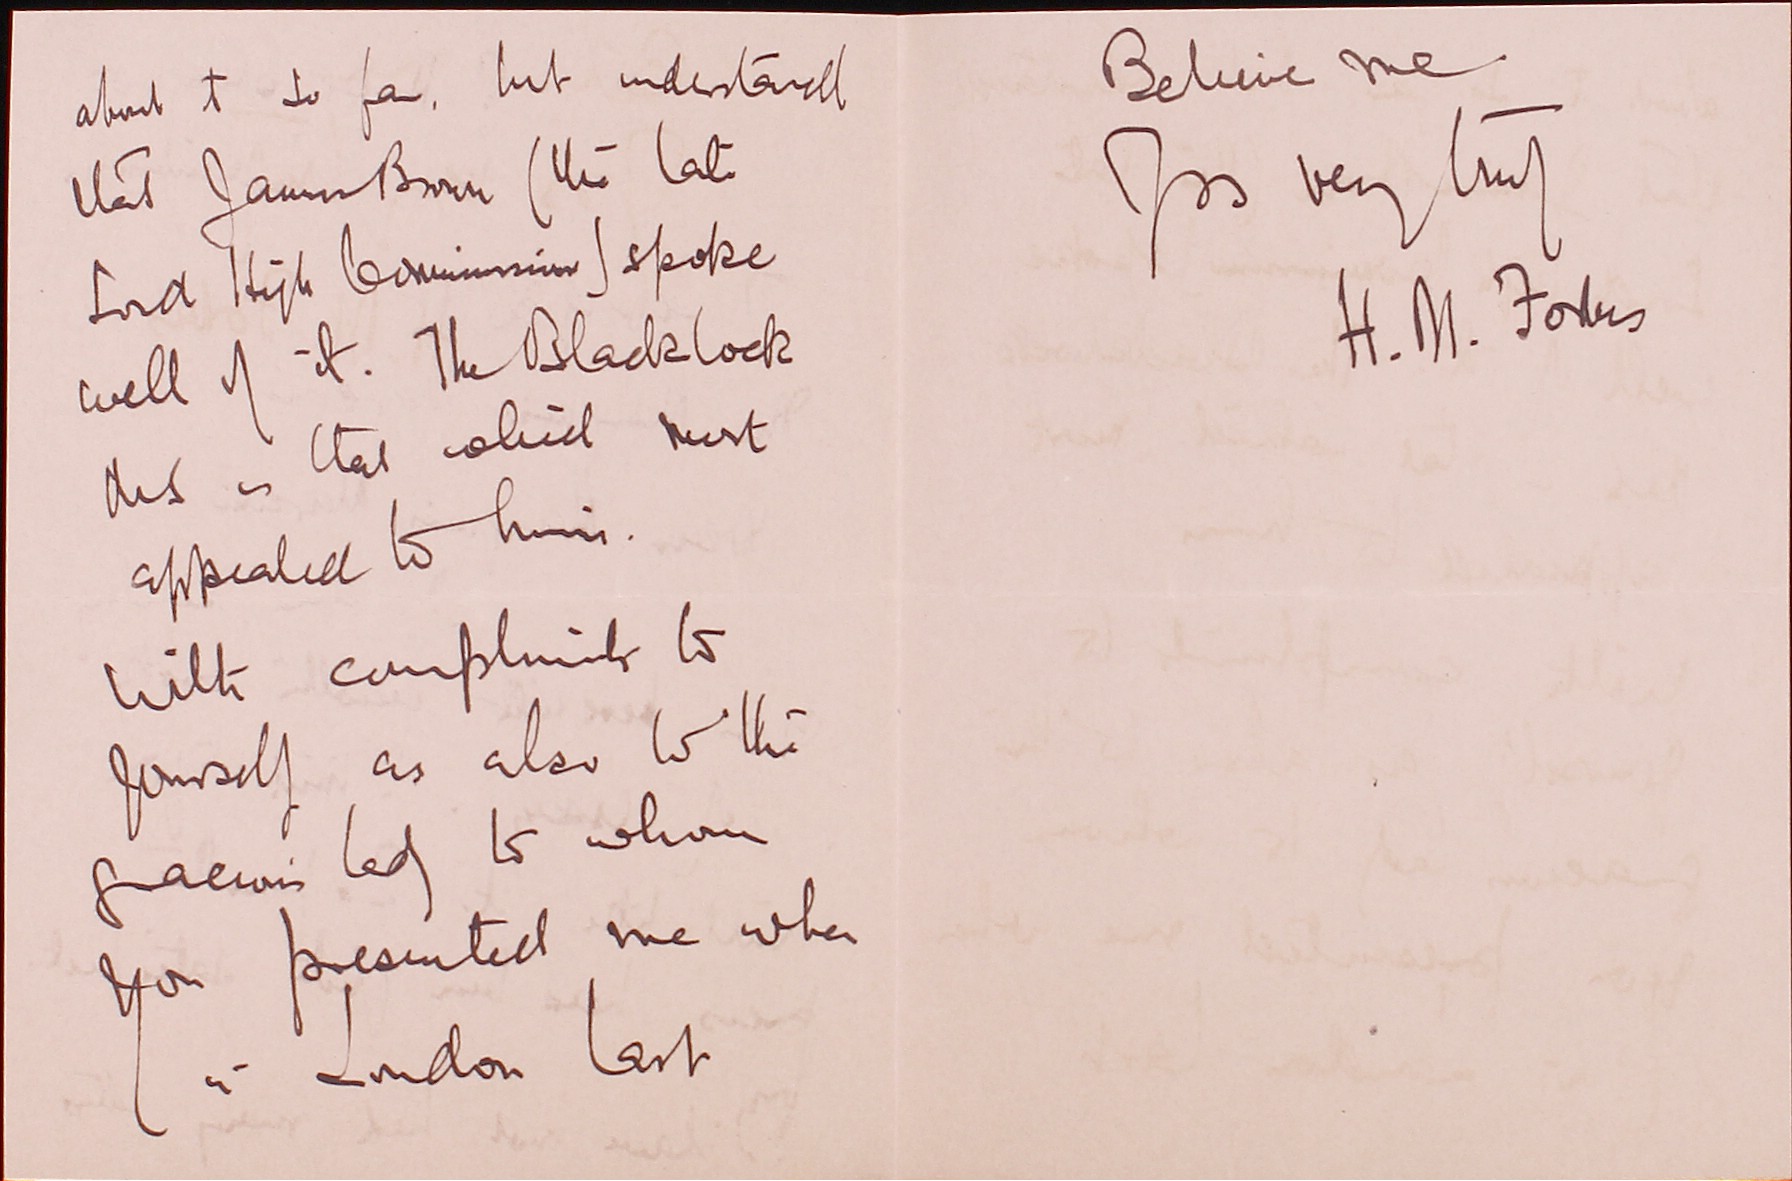 about it so far, but understand
that James Brown (the late
Lord High Commissioner) spoke
well of it. The Blacklock
is that which most
appealed to him.
With compliments to
yourself as also to the
gracious lady to whom
you presented me when
in London last
Believe me
Yrs very truly
H. M.